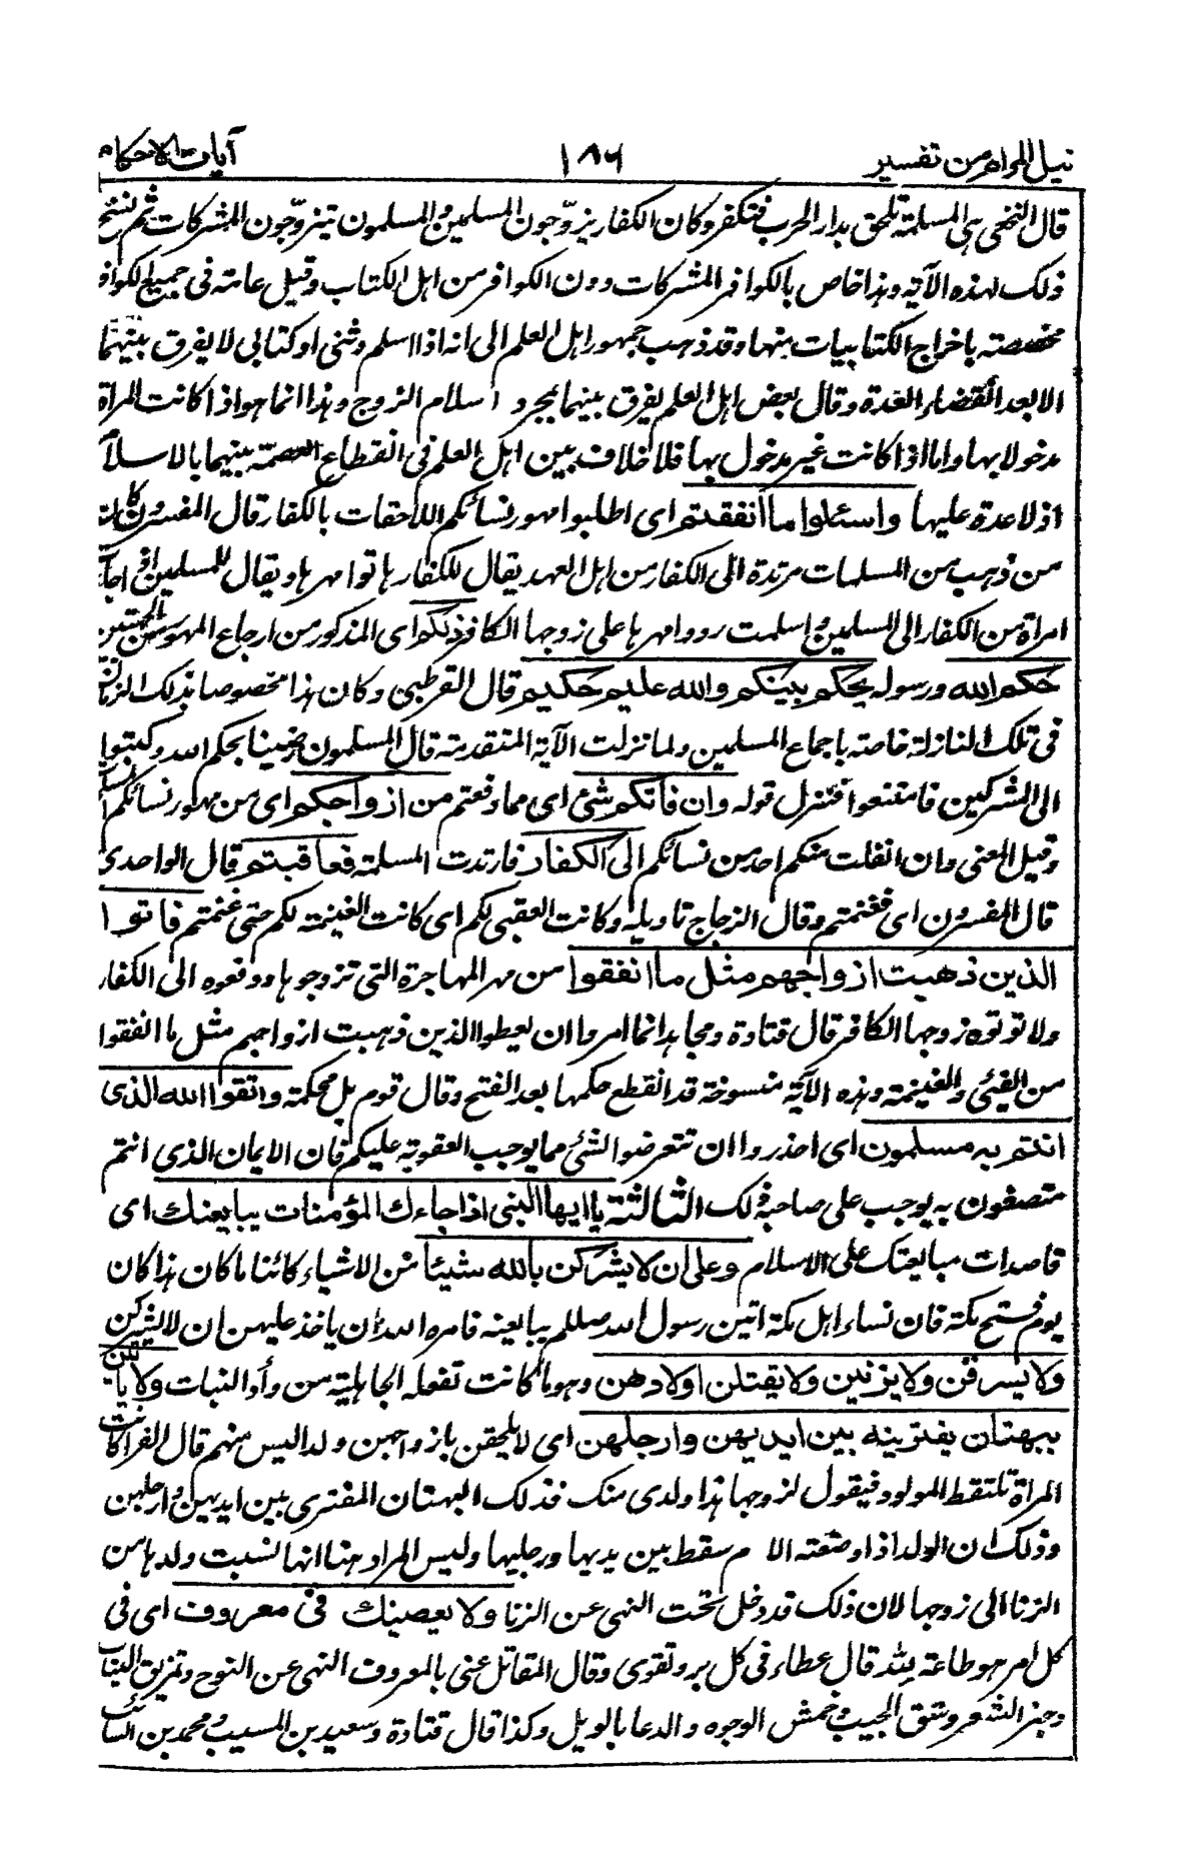 نيل المرام من تفسير ١٨٦ آيات الاحكام
قال النخعي هي المسلمة تلحق بدار الحرب فتكفر وكان الكفار يزوّجون المسلمين والمسلمون يتزوّجون المشركات ثم نسخ
ذلك لهذه الآية وهذا خاص بالكوافر المشركات دون الكوافر من اهل الكتاب وقيل عامة في جميع الكوافر
مخصصة باخراج الكتابيات منها وقد ذهب جمهور اهل العلم الى انه اذا اسلم وثنى او كتابي لا يفرق بينهما
الا بعد انقضاء العدة وقال بعض اهل العلم يفرق بينهما بمجرد اسلام الزوج وهذا انما هو اذا كانت المرأة
مدخولا بها واما اذا كانت غير مدخول بها فلا خلاف بين اهل العلم في انقطاع العصمة بينهما بالاسلام
اذ لا عدة عليها واسئلوا ما انفقتم اى اطلبوا مهور نسائكم اللاحقات بالكفار قال المفسرون كان
من ذهب من المسلمات مرتدة الى الكفار من اهل العهد يقال للكفار هاتوا مهرها ويقال للمسلمين اذا جاءت
امرأة من الكفار الى المسلمين واسلمت ردوا مهرها على زوجها الكافر ذلكم اى المذكور من ارجاع المهور من الجهتين
حكم الله ورسوله يحكم بينكم والله عليم حكيم قال القرطبي وكان هذا مخصوصا بذلك الزمان
في تلك النازلة خاصة باجماع المسلمين ولما نزلت الآية المتقدمة قال المسلمون رضينا بحكم الله وكتبوا
الى المشركين فامتنعوا فنزل قوله وان فاتكم شئ اى مما دفعتم من ازواجكم اى من مهور نسائكم المسلمات
وقيل المعنى وان انفلت منكم احد من نسائكم الى الكفار فارتدت المسلمة فعاقبتم قال الواحدى
قال المفسرون اى فغنمتم وقال الزجاج تاويله وكانت العقبى لكم اى كانت الغنيمة لكم حتى غنمتم فاتوا
الذين ذهبت ازواجهم مثل ما انفقوا من مهر المهاجرة التي تزوجوها ودفعوه الى الكفار
ولا توتوه زوجها الكافر قال قتادة ومجاهد انما امروا ان يعطوا الذين ذهبت ازواجهم مثل ما انفقوا
من الفيئ والغنيمة وهذه الآية منسوخة قد انقطع حكمها بعد الفتح وقال قوم بل محكمة واتقوا الله الذى
انتم به مسلمون اى احذروا ان تتعرضوا لشئ مما يوجب العقوبة عليكم فان الايمان الذى انتم
متصفون به يوجب على صاحبه ذلك الثالثة يا ايها النبي اذا جاءك المؤمنات يبايعنك اى
قاصدات مبايعتك على الاسلام وعلى ان لا يشركن بالله شيئا من الاشياء كائنا ما كان هذا كان
يوم فتح مكة فان نساء اهل مكة اتين رسول الله صللم يبايعنه فامره الله ان ياخذ عليهن ان لا يشركن
ولا يسرقن ولا يزنين ولا يقتلن اولادهن وهو ما كانت تفعله الجاهلية من وأد البنات ولا ياتين
ببهتان يفترينه بين ايديهن وارجلهن اى لا يلحقن بازواجهن ولدا ليس منهم قال الفرا كانت
المرأة تلتقط المولود فيقول لزوجها هذا ولدى منك فذلك البهتان المفترى بين ايديهن وارجلهن
وذلك ان الولد اذا وضعته الام سقط بين يديها ورجليها وليس المراد هنا انها نسبت ولدها من
الزنا الى زوجها لان ذلك قد دخل تحت النهى عن الزنا ولا يعصينك في معروف اى في
كل امر هو طاعة لله قال عطاء في كل بر وتقوى وقال المقاتل عنى بالمعروف النهى عن النوح وتمزيق الثياب
وجز الشعر وشق الجيب وخمش الوجوه والدعا بالويل وكذا قال قتادة وسعيد بن المسيب ومحمد بن السائب